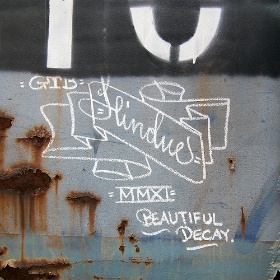 =GTB=
Slindues
=MMXI=
BEAUTIFUL
DECAY.